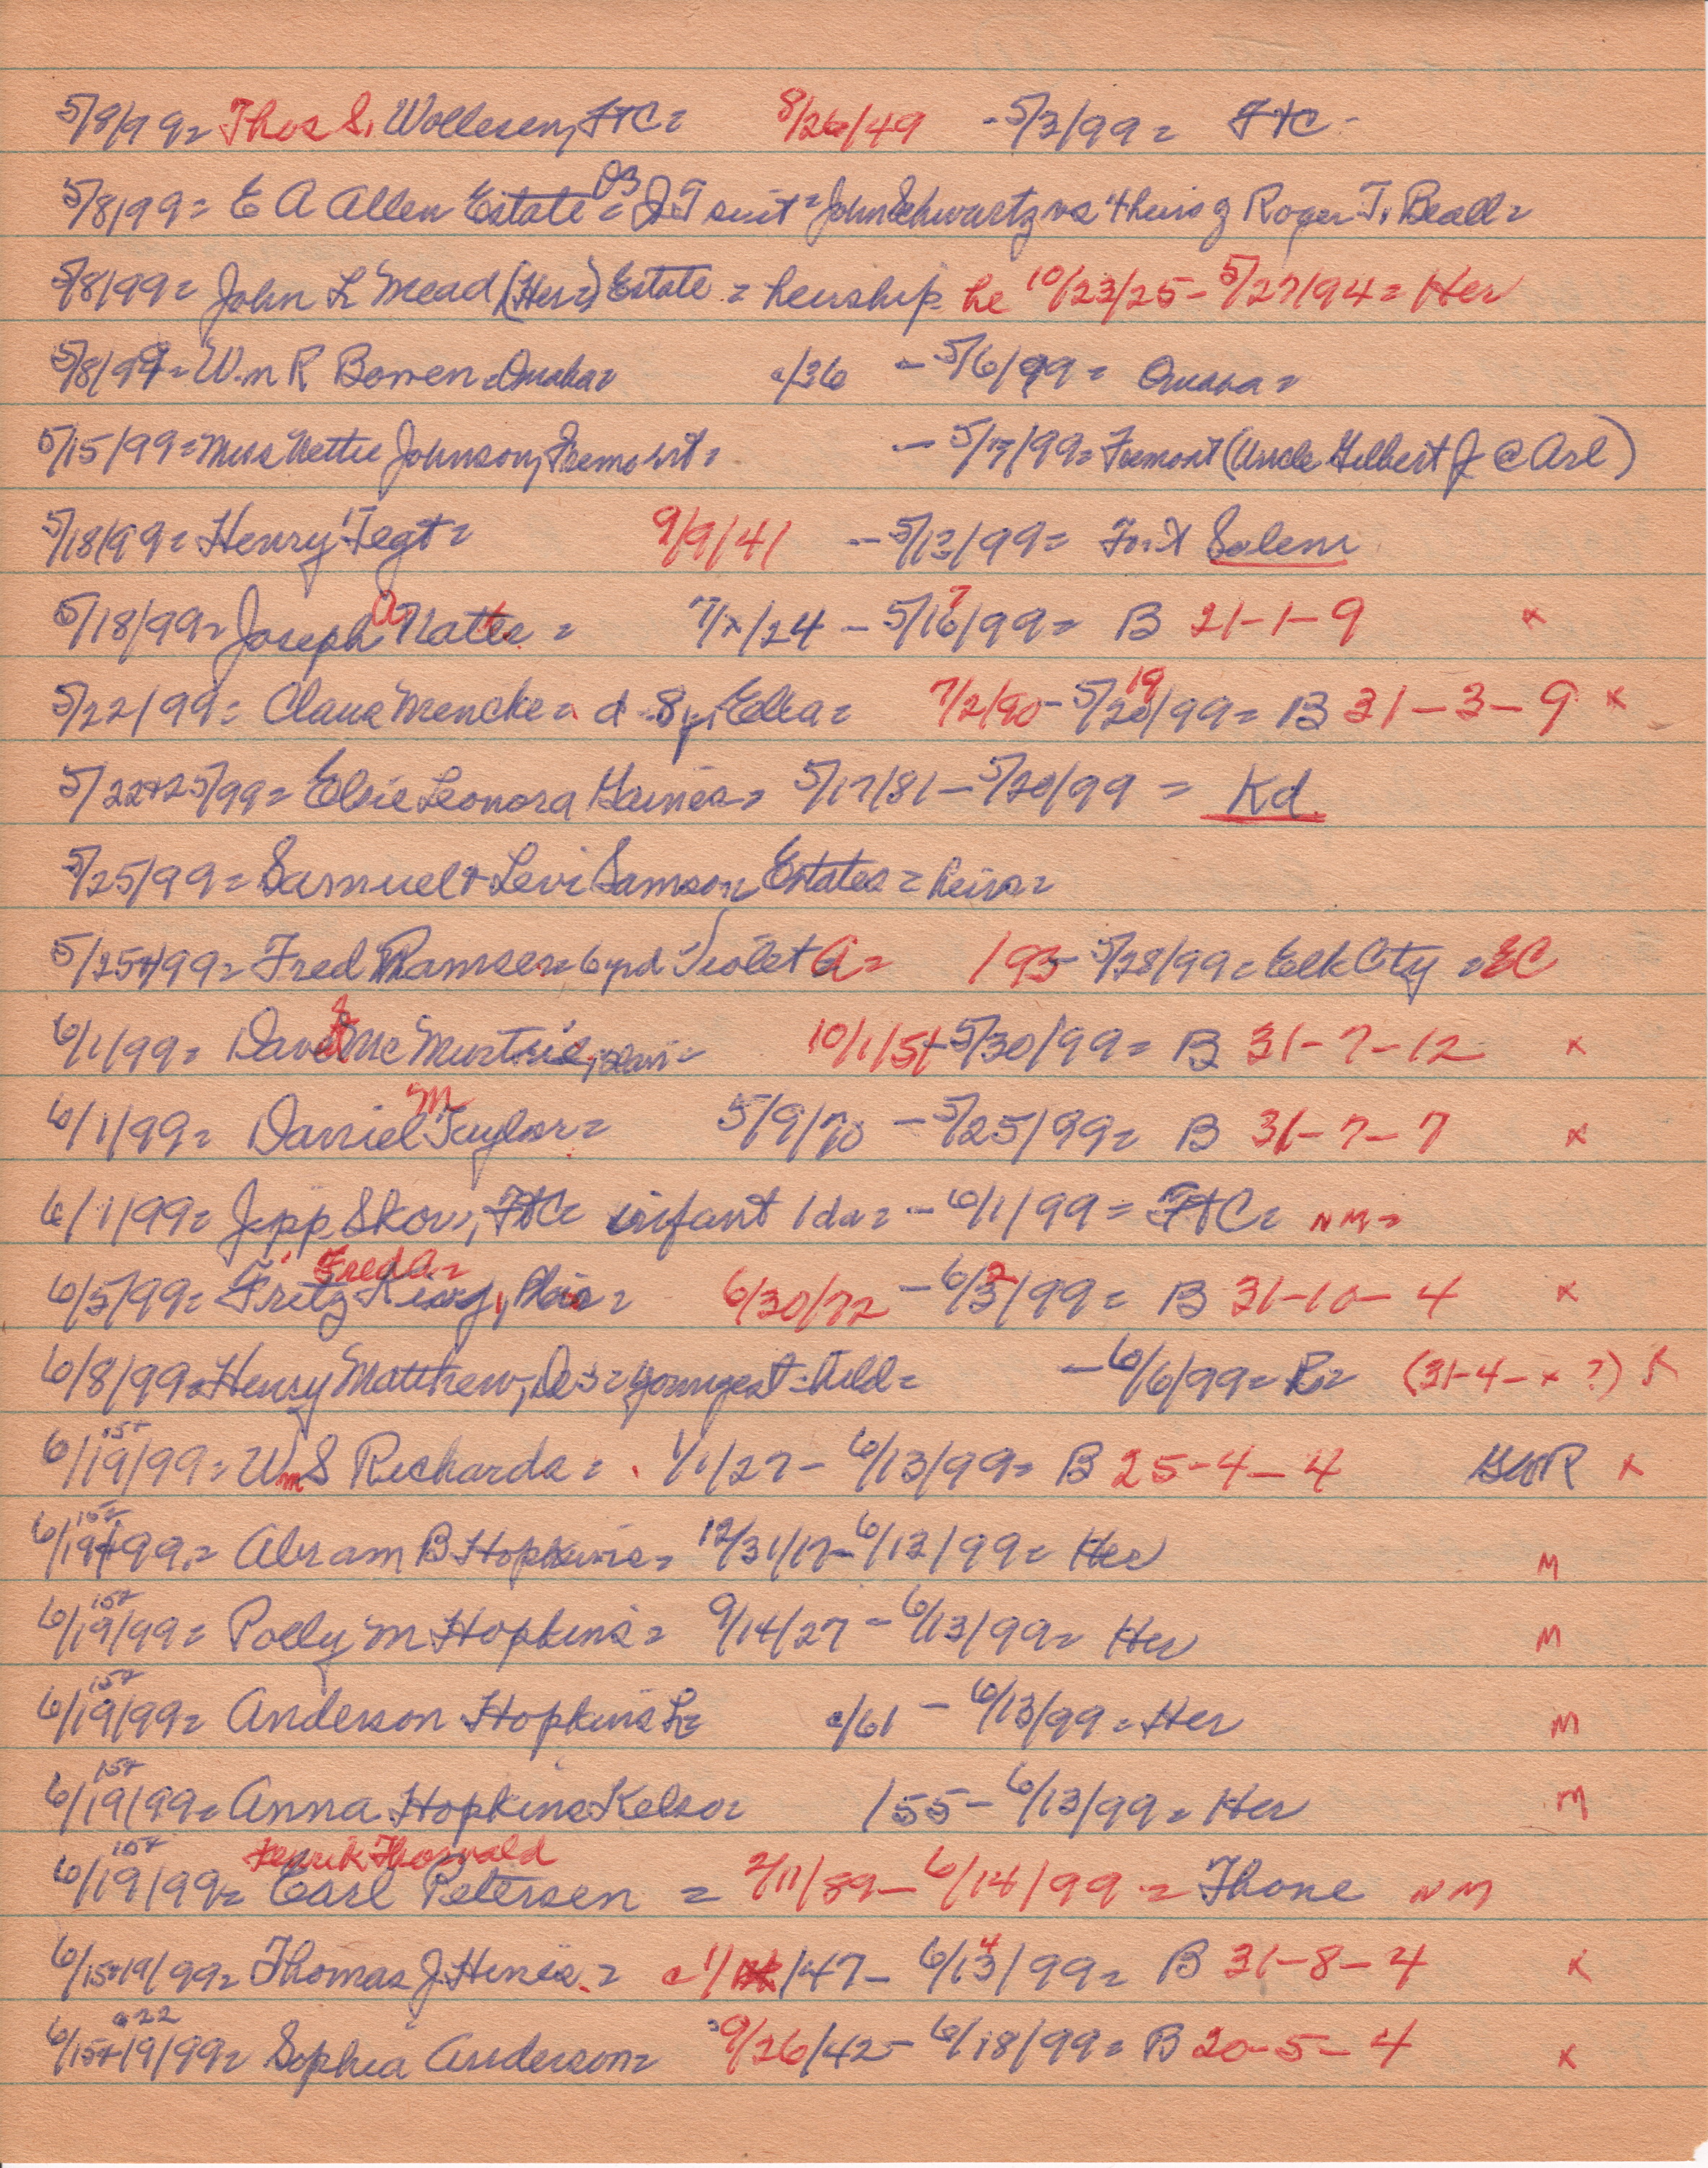 5/8/99= Thos S. Wollesen, FtC= 8/26/49 - 5/3/99= FtC -
5/8/99= E A Allen Estate = D3 QT suit = John Schwartz vs 4 heirs of Roger T. Beall=
5/8/99= John L Mead (Her=) Estate = heirship he 10/23/25 - 5/27/94= Her
5/8/99= Wm R Bowen = Omaha= c/36 - 5/6/99= Omaha=
5/15/99= Miss Nettie Johnson, Fremont= - 5/7/99= Fremont (Uncle Gilbert J @ Arl)
5/18/99= Henry Tegt= 9/9/41 - 5/13/99= Font Salem
5/18/99= Joseph A Natte = 7/x/24 - 5/16 7/99= B 21-1-9 x
5/22/99= Claus Mencke = d 8 y, Ella= 7/2/90 - 5/20 19/99= B 31-3-9 x
5/22+25/99= Elsie Leonora Haines= 5/17/81 - 5/20/99 = Kd
5/25/99= Samuel + Levi Samson Estates = heirs=
5/25/99= Fred Ramser= 6 yr d Violet A= /93 - 5/28/99= Elk City = EC
6/1/99= Dave S McMurtrie, 10/1/51 - 5/30/99= B 31-7-12 x
6/1/99= Daniel M Taylor= 5/9/70 - 5/25/99= B 31-7-7 x
6/1/99= Jepp Skov, FtC= infant 1 da= - 6/1/99= FtC= NM=
6/5/99= Fritz Fred A= King, 6/30/72 - 6/3 2/99= B 31-10-4 x
6/8/99= Henry Matthew, DeS= youngest child= - 6/6/99= R= (31-4-x?) x
6/19 15+/99= Wm S Richards= 1/1/27 - 6/13/99= B 25-4-4 GWR x
6/19 15+/99= Abram B Hopkins= 12/31/17 - 6/13/99= Her M
6/19 15+/99= Polly M Hopkins= 9/14/27 - 6/13/99= Her M
6/19 15+/99= Anderson Hopkins L= c/61 - 6/13/99= Her M
6/19 15+/99= Anna Hopkins Kelso= /55 - 6/13/99= Her M
6/19 15+/99= Henrik Thorvald Carl Petersen = 2/11/89 - 6/14/99 = Thone NM
6/15+19/99= Thomas J. Hines = c 1/ /47 - 6/13 4/99= B 31-8-4 x
6/15+19 +22/99= Sophia Anderson= 9/26/42 - 6/18/99= B 20-5-4 x